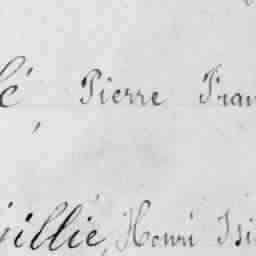 é, Pierre Fran
illié, Henri Isi